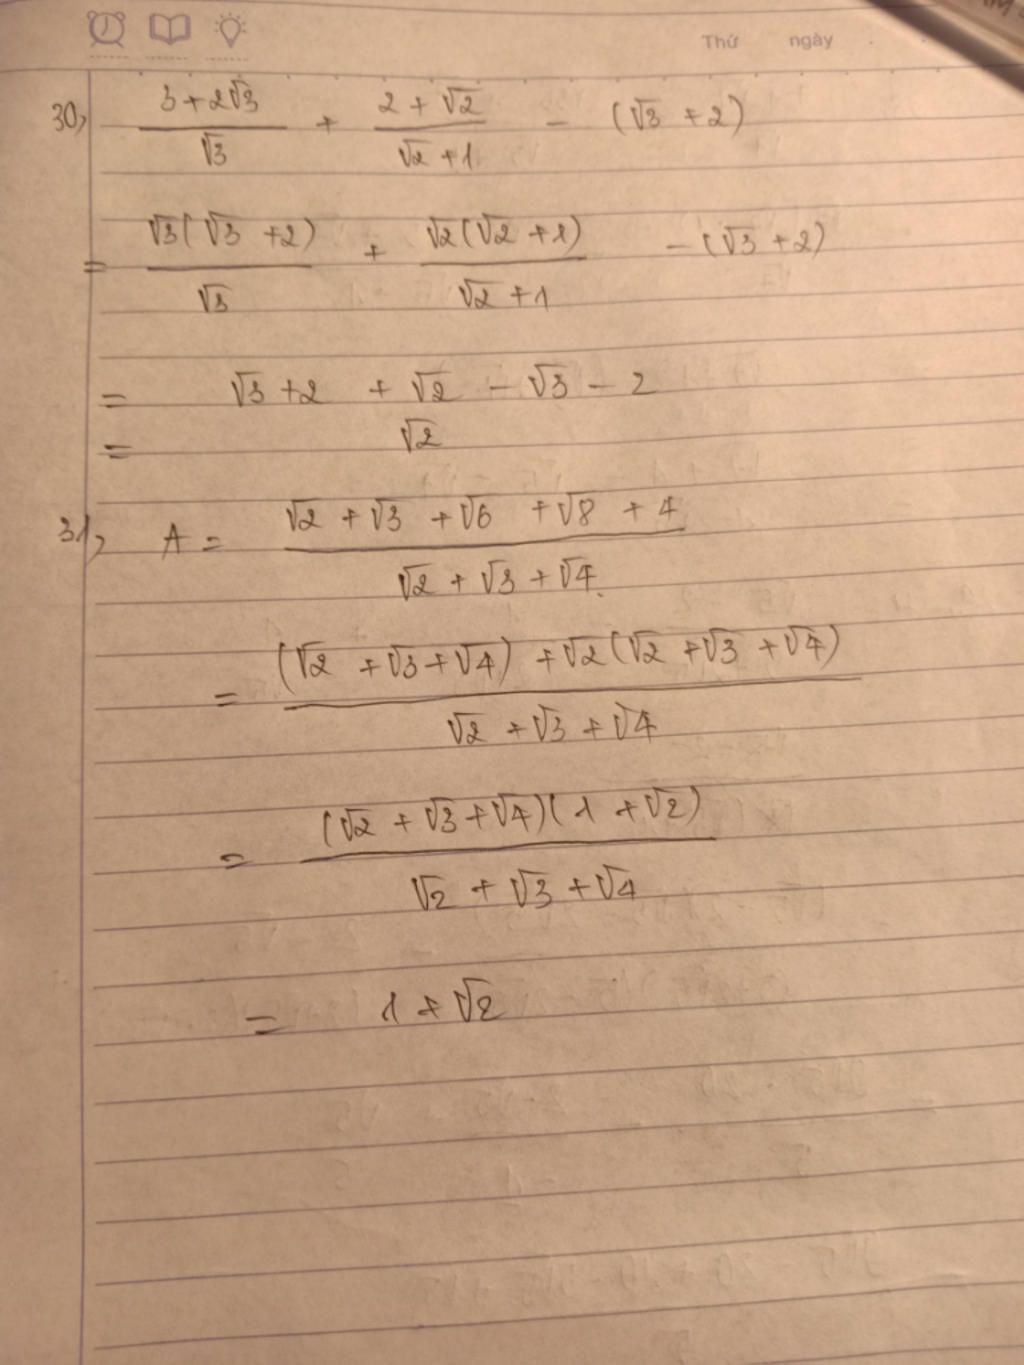 Thứ ngày
30, (3 + 2√3)/√3 + (2 + √2)/(√2 + 1) - (√3 + 2)
= √3(√3 + 2)/√3 + √2(√2 + 1)/(√2 + 1) - (√3 + 2)
= √3 + 2 + √2 - √3 - 2
= √2
31, A = (√2 + √3 + √6 + √8 + 4)/(√2 + √3 + √4)
= ((√2 + √3 + √4) + √2(√2 + √3 + √4))/(√2 + √3 + √4)
= (√2 + √3 + √4)(1 + √2)/(√2 + √3 + √4)
= 1 + √2